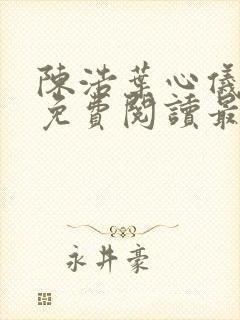 陳浩葉心儀
免費閱讀最
永井豪